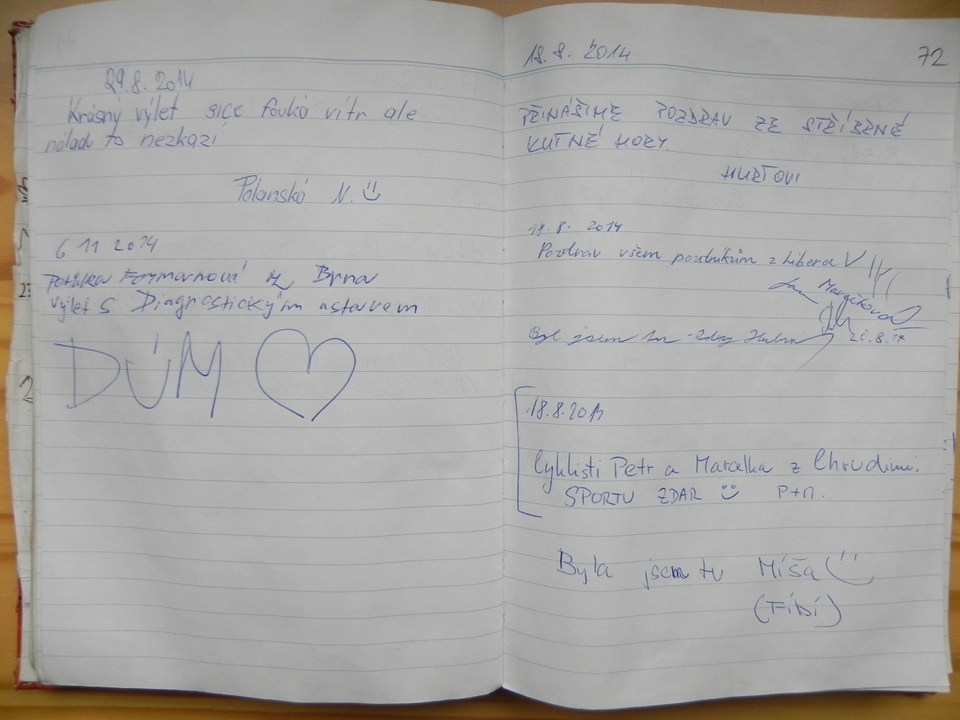 29.8.2014
Krásný výlet sice fouká vítr ale
nálad to nezkazí
Polanská N.
6 11 2014
Formanová z Brna
výlet s Diagnostickým ústavem
DÚM
18.8.2014
72
PŘINÁŠÍME POZDRAV ZE STŘÍBRNÉ
KUTNÉ HORY.
HURŤOVI
18.8. 2014
Pozdrav všem poutníkům z Liberce
Byl jsem tu
18.8.2013
Cyklisti Petr a Marcelka z Chrudimi.
SPORTU ZDAR P+M.
Byla jsem tu Míša
(FÍBÍ)